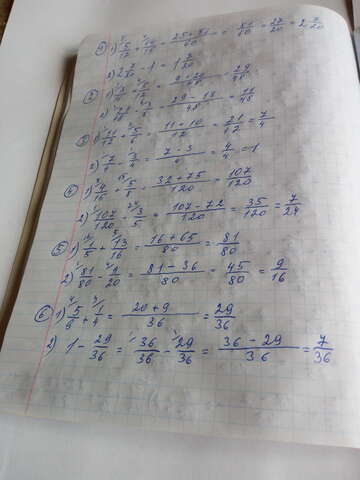 5/12 + 14/15 = 25 + 56/60 = 81/60 = 27/20 = 2 7/20
2) 2 7/20 - 1 = 1 7/20
= 29/48
2) = 29 - 18/48 = 11/48
③ 1) 11/12 + 5/6 = 11 + 10/12 = 21/12 = 7/4
2) 7/4 - 3/4 = 7 - 3/4 = 4/4 = 1
⑥ 1) 4/15 + 5/8 = 32 + 75/120 = 107/120
2) 107/120 - 3/5 = 107 - 72/120 = 35/120 = 7/24
⑤ 1) 1/5 + 13/16 = 16 + 65/80 = 81/80
2) 81/80 - 9/20 = 81 - 36/80 = 45/80 = 9/16
⑥ 1) 5/9 + 1/4 = 20 + 9/36 = 29/36
2) 1 - 29/36 = 36/36 - 29/36 = 36 - 29/36 = 7/36